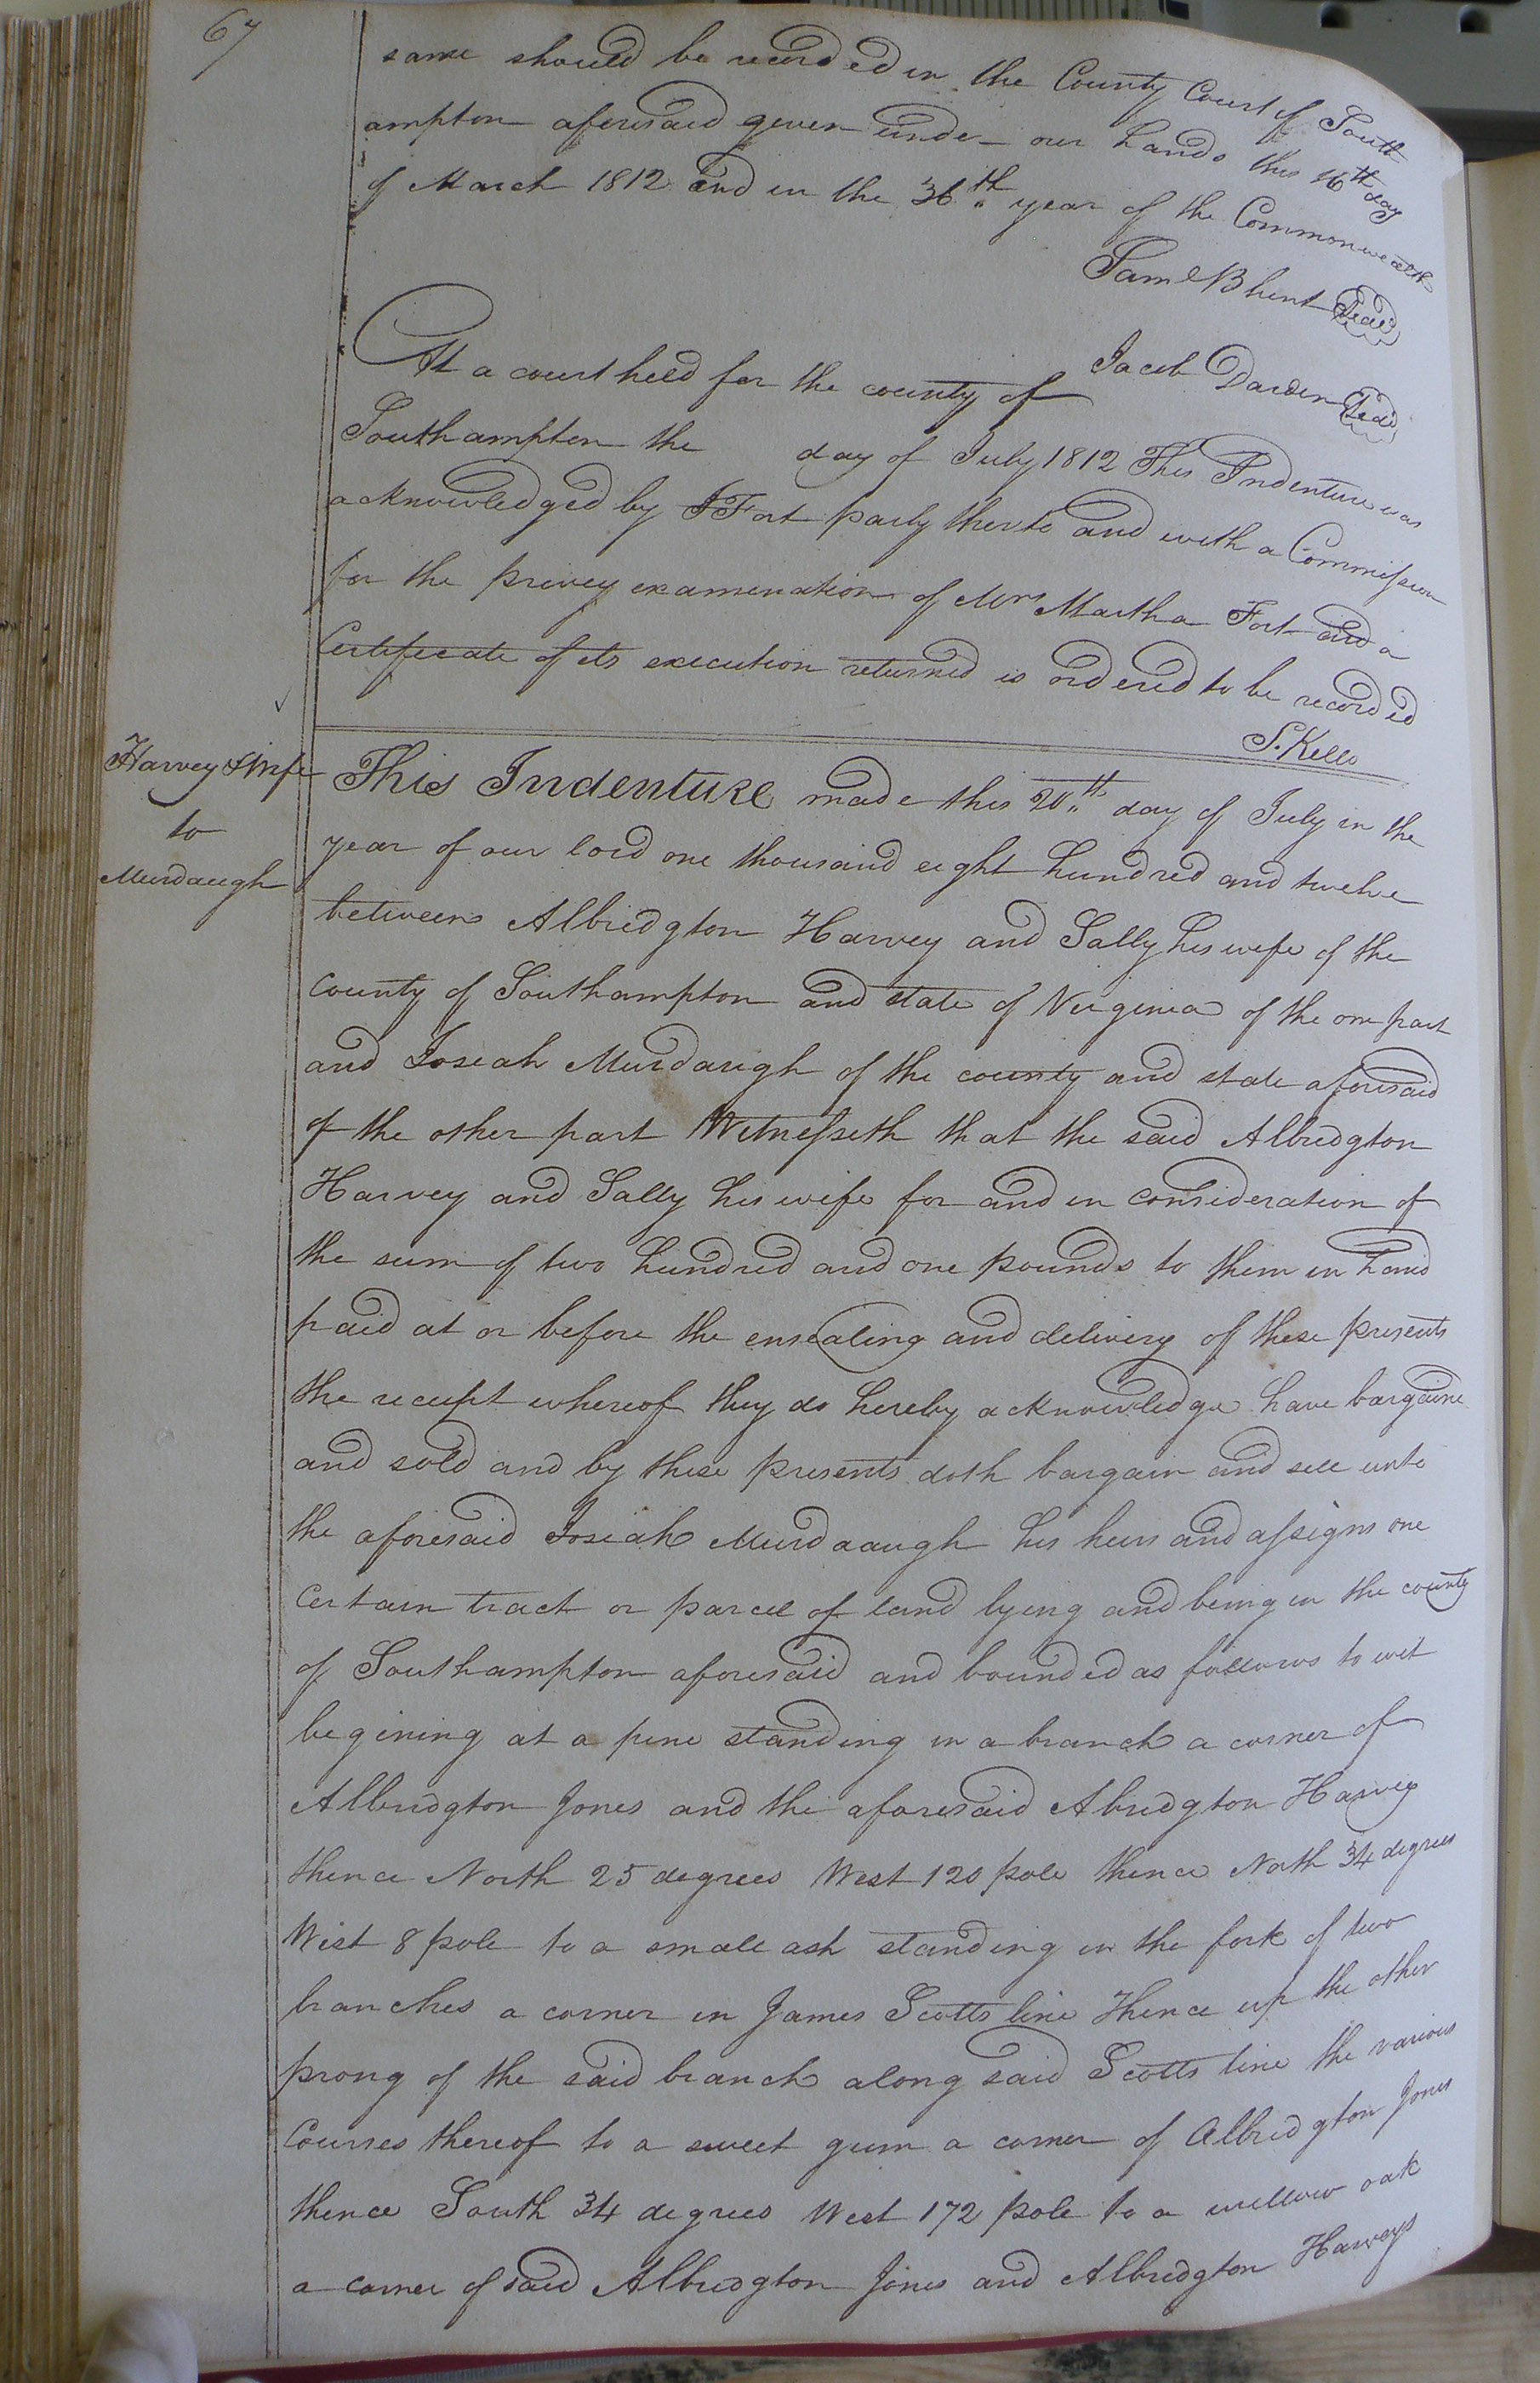 67
same should be recorded in the County Court of South
ampton aforesaid given under our hands this 16th day
of March 1812 and in the 36th year of the Commonwealth
Saml Blunt Seal
Jacob Darden Seal
At a court held for the county of
Southampton the day of July 1812 This Indenture was
acknowledged by Fort party therto and with a Commission
for the privey examenation of Mrs Martha Fort and a
Certificate of its execution returned is ordered to be recorded
S. Kello
Harvey & Wife
to
Murdaugh
This Indenture made this 20th day of July in the
year of our lord one thousand eight hundred and twelve
between Albridgton Harvey and Sally his wife of the
county of Southampton and state of Virginia of the one part
and Josiah Murdaugh of the county and state aforesaid
of the other part Witnesseth that the said Albridgton
Harvey and Sally his wife for and in consideration of
the sum of two hundred and one pounds to them in hand
paid at or before the ensealing and delivery of these presents
the receipt whereof they do hereby acknowledge have bargaine
and sold and by these presents doth bargain and sell unto
the aforesaid Josiah Murdaaugh his heirs and assigns one
certain tract or parcel of land lying and being in the county
of Southampton aforesaid and bounded as follows to wit
begining at a pine standing in a branch a corner of
Albridgton Jones and the aforesaid Abridgton Harvey
thence North 25 degrees West 120 pole thence North 34 degrees
West 8 pole to a small ash standing in the fork of two
branches a corner in James Scotts line Thence up the other
prong of the said branch along said Scotts line the various
Courses thereof to a sweet gum a corner of Albridgton Jones
thence South 34 degrees West 172 pole to a willow oak
a corner of said Albridgton Jones and Albridgton Harveys